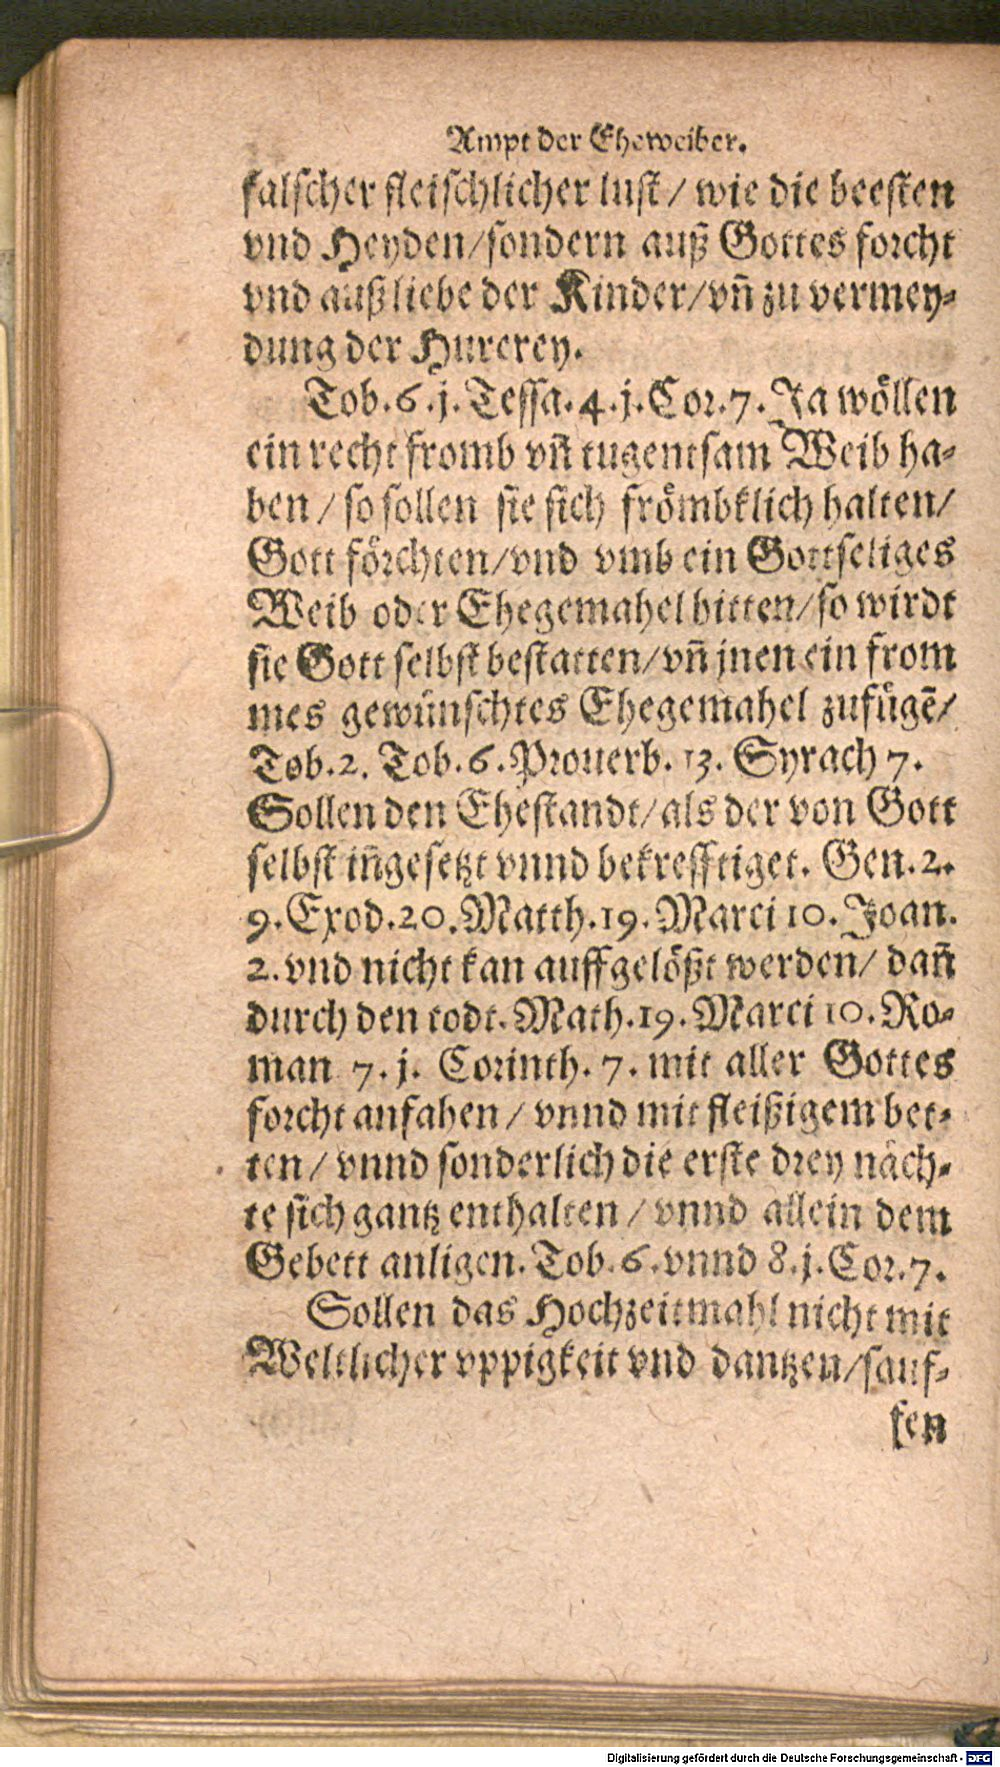 Ampt der Eheweiber.
falscher fleischlicher lust / wie die beesten
vnd Heyden/sondern auß Gottes forcht
vnd auß liebe der Kinder/vñ zu vermey-
dung der Hurerey.
Tob.6.j.Tessa.4.j.Cor.7.Ja wöllen
ein recht fromb vñ tugentsam Weib ha-
ben / so sollen sie sich frömbklich halten/
Gott förchten/vnd vmb ein Gottseliges
Weib oder Ehegemahel bitten/so wirdt
sie Gott selbst bestatten/vñ jnen ein from
mes gewünschtes Ehegemahel zufügẽ/
Tob.2. Tob.6.Prouerb. 13. Syrach 7.
Sollen den Ehestandt/als der von Gott
selbst iñgesetzt vnnd bekrefftiget. Gen.2.
9.Exod.20.Matth.19.Marci 10.Joan.
2.vnd nicht kan auffgelößt werden/ dañ
durch den todt.Math.19.Marci 10.Ro-
man 7. j. Corinth. 7. mit aller Gottes
forcht anfahen / vnnd mit fleißigem bet-
ten / vnnd sonderlich die erste drey näch-
te sich gantz enthalten / vnnd allein dem
Gebett anligen.Tob.6.vnnd 8.j.Cor.7.
Sollen das Hochzeitmahl nicht mit
Weltlicher vppigkeit vnd dantzen/sauf-
fen
Digitalisierung gefördert durch die Deutsche Forschungsgemeinschaft - DFG